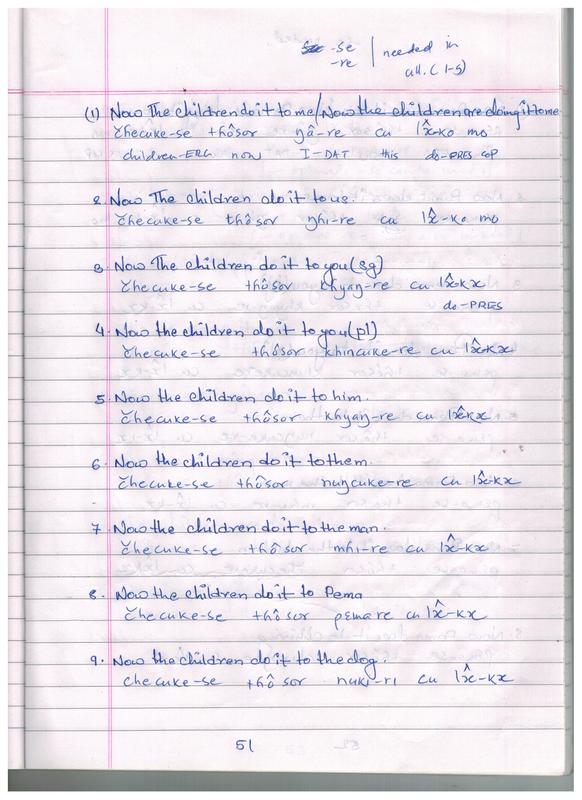 -se | needed in
-re | all. (1-5)
(1) Now The children do it to me/Now the children are doing it to me
čhecuke-se thôsor ŋâ-re cu lx̂-ko mo
children-ERG now I-DAT this do-PRES COP
2. Now The children do it to us.
čhecuke-se thôsor ŋhi-re cu lx̂-ko mo
3. Now The children do it to you (sg)
čhecuke-se thôsor khyaŋ-re cu lx̂-kx
do-PRES
4. Now the children do it to you (pl)
čhecuke-se thôsor khincuke-re cu lx̂-kx
5. Now the children do it to him.
čhecuke-se thôsor khyaŋ-re cu lx̂-kx
6. Now the children do it to them.
čhecuke-se thôsor nuŋcuke-re cu lx̂-kx
7. Now the children do it to the man.
čhecuke-se thôsor mhi-re cu lx̂-kx
8. Now the children do it to Pema
čhecuke-se thôsor pema re cu lx̂-kx
9. Now the children do it to the dog.
checuke-se thôsor nuki-ri cu lx̂-kx
51